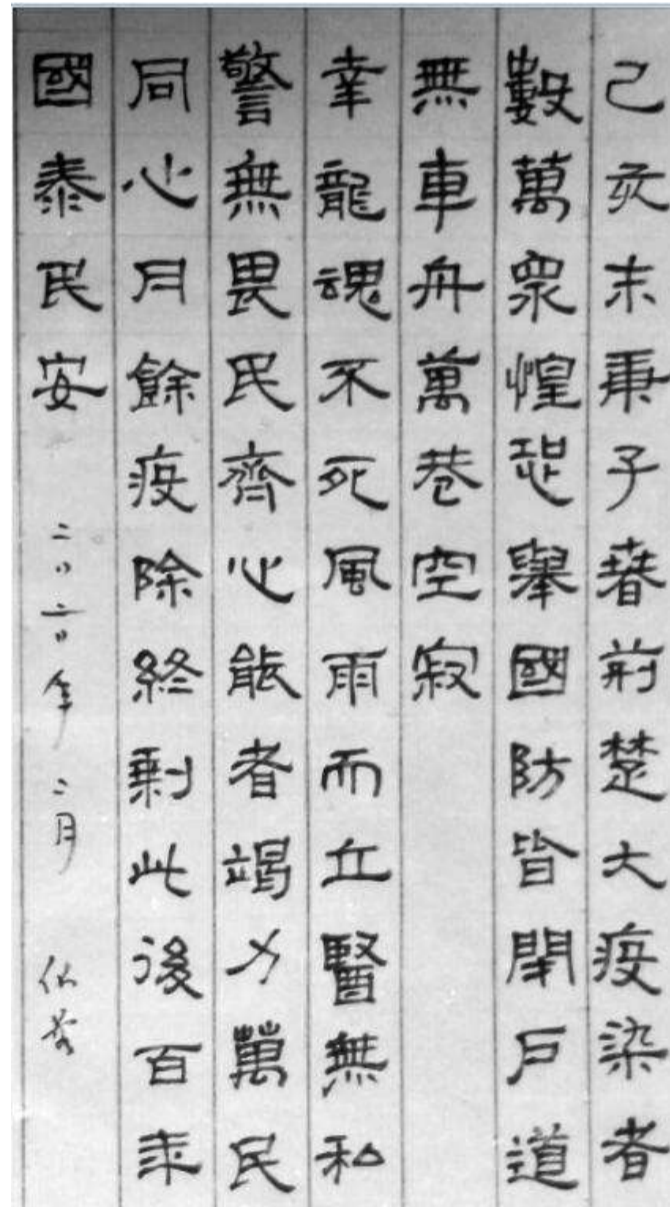 己亥末庚子春荊楚大疫染者
數萬眾惶恐舉國防皆閉戶道
無車舟萬巷空寂
幸龍魂不死風雨而立醫無私
警無畏民齊心能者竭力萬民
同心月餘疫除終剩此後百年
國泰民安
二〇二〇年二月